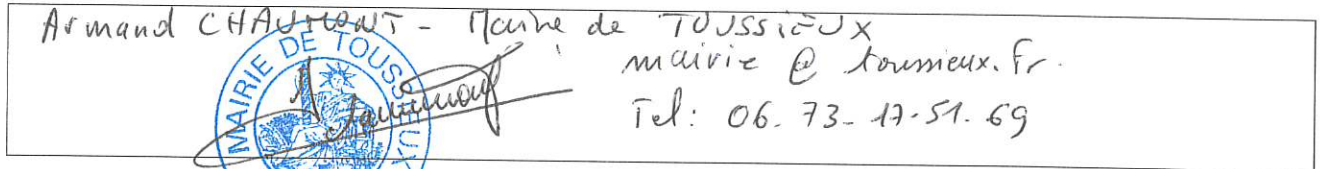 Armand CHAUMONT - Maire de TOUSSIEUX
mairie @ toussieux.fr.
Tel: 06.73-17.51.69
MAIRIE DE TOUSSIEUX